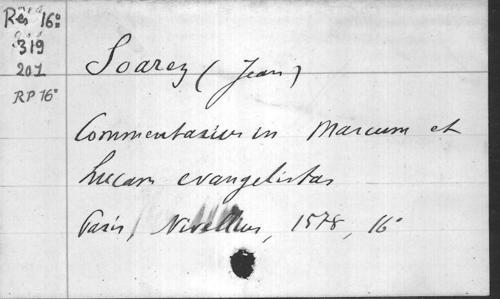 Rés 16°
319
201
RP 16°
Soarez (Jean)
Commentarius in Marcum et
Lucam evangelistas
Paris, Nivellius, 1578, 16°